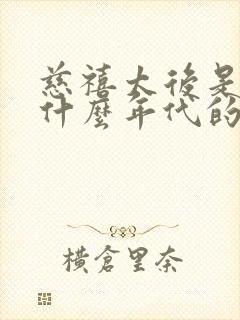 慈禧太後是
什麼年代的
橫倉里奈